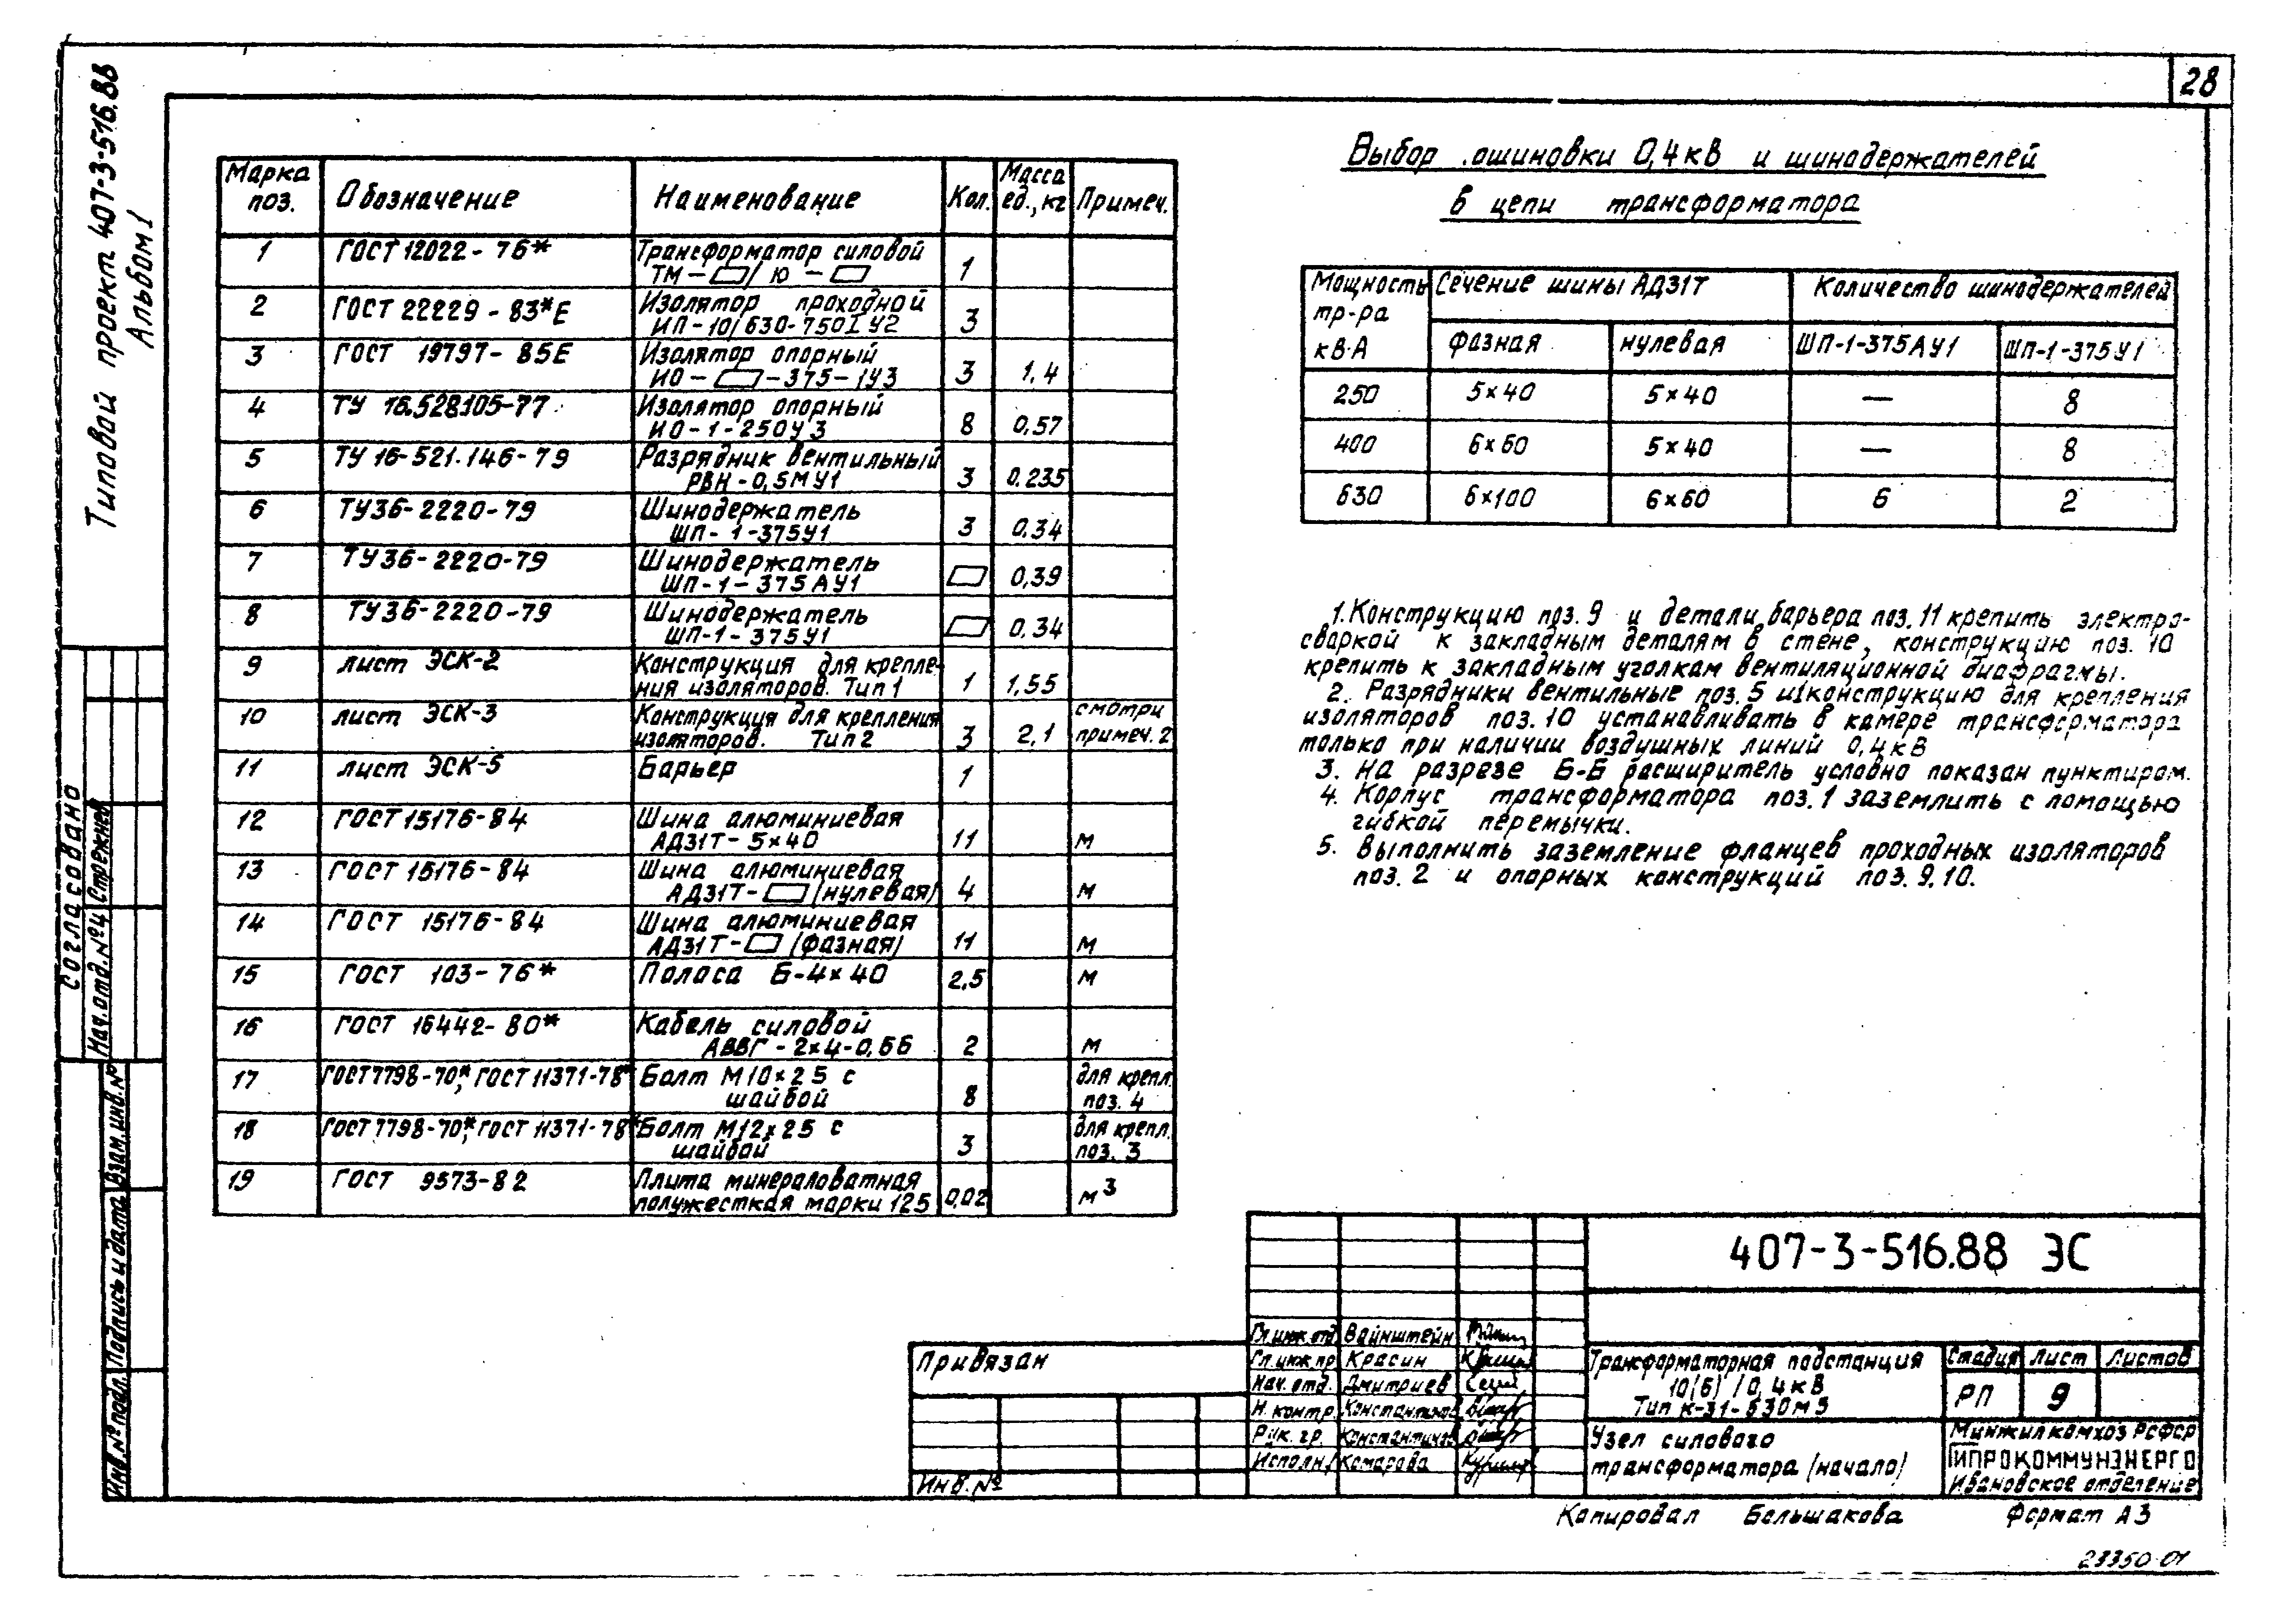 28
Типовой проект 407-3-516.88
Альбом 1
Марка поз. | Обозначение | Наименование | Кол. | Масса ед., кг | Примеч.
1 | ГОСТ 12022-76* | Трансформатор силовой
ТМ-▱/10-▱ | 1
2 | ГОСТ 22229-83*Е | Изолятор проходной
ИП-10/630-750I У2 | 3
3 | ГОСТ 19797-85Е | Изолятор опорный
ИО-▱-375-IУ3 | 3 | 1,4
4 | ТУ 16.528.105-77 | Изолятор опорный
ИО-1-250У3 | 8 | 0,57
5 | ТУ 16-521.146-79 | Разрядник вентильный
РВН-0,5МУ1 | 3 | 0.235
6 | ТУ36-2220-79 | Шинодержатель
ШП-1-375У1 | 3 | 0.34
7 | ТУ36-2220-79 | Шинодержатель
ШП-1-375АУ1 | ▱ | 0,39
8 | ТУ36-2220-79 | Шинодержатель
ШП-1-375У1 | ▱ | 0,34
9 | лист ЭСК-2 | Конструкция для крепле-
ния изоляторов. Тип 1 | 1 | 1,55
10 | лист ЭСК-3 | Конструкция для крепления
изоляторов. Тип 2 | 3 | 2,1 | смотри примеч. 2
11 | лист ЭСК-5 | Барьер | 1
12 | ГОСТ 15176-84 | Шина алюминиевая
АД31Т-5×40 | 11 | м
13 | ГОСТ 15176-84 | Шина алюминиевая
АД31Т-▱ (нулевая) | 4 | м
14 | ГОСТ 15176-84 | Шина алюминиевая
АД31Т-▱ (фазная) | 11 | м
15 | ГОСТ 103-76* | Полоса Б-4×40 | 2,5 | м
16 | ГОСТ 16442-80* | Кабель силовой
АВВГ-2×4-0,66 | 2 | м
17 | ГОСТ 7798-70*, ГОСТ 11371-78* | Болт М10×25 с
шайбой | 8 | для крепл. поз. 4
18 | ГОСТ 7798-70*, ГОСТ 11371-78* | Болт М12×25 с
шайбой | 3 | для крепл. поз. 3
19 | ГОСТ 9573-82 | Плита минераловатная
полужесткая марки 125 | 0,02 | м³
Выбор ошиновки 0,4кВ и шинодержателей
в цепи трансформатора
Мощность тр-ра кВ·А | Сечение шины АД31Т | Количество шинодержателей
фазная | нулевая | ШП-1-375АУ1 | ШП-1-375У1
250 | 5×40 | 5×40 | — | 8
400 | 6×60 | 5×40 | — | 8
630 | 6×100 | 6×60 | 6 | 2
1. Конструкцию поз. 9 и детали барьера поз. 11 крепить электро-
сваркой к закладным деталям в стене, конструкцию поз. 10
крепить к закладным уголкам вентиляционной диафрагмы.
2. Разрядники вентильные поз. 5 и конструкцию для крепления
изоляторов поз. 10 устанавливать в камере трансформатора
только при наличии воздушных линий 0,4кВ
3. На разрезе Б-Б расширитель условно показан пунктиром.
4. Корпус трансформатора поз. 1 заземлить с помощью
гибкой перемычки.
5. Выполнить заземление фланцев проходных изоляторов
поз. 2 и опорных конструкций поз. 9, 10.
Согласовано
Нач. отд. №4 Стрежнев
Взам. инв. №
Подпись и дата
Инв. № подл.
407-3-516.88 ЭС
Гл. инж. отд. Вайнштейн
Гл. инж. пр. Красин
Нач. отд. Дмитриев
Н. контр. Константинов
Рук. гр. Константинов
Исполн. Комарова
Привязан
Инв. №
Трансформаторная подстанция
10(6)/0,4кВ
Тип К-31-630м5
Стадия | Лист | Листов
РП | 9
Узел силового
трансформатора (начало)
Минжилкомхоз РСФСР
ГИПРОКОММУНЭНЕРГО
Ивановское отделение
Копировал Большакова
Формат А3
23350-01